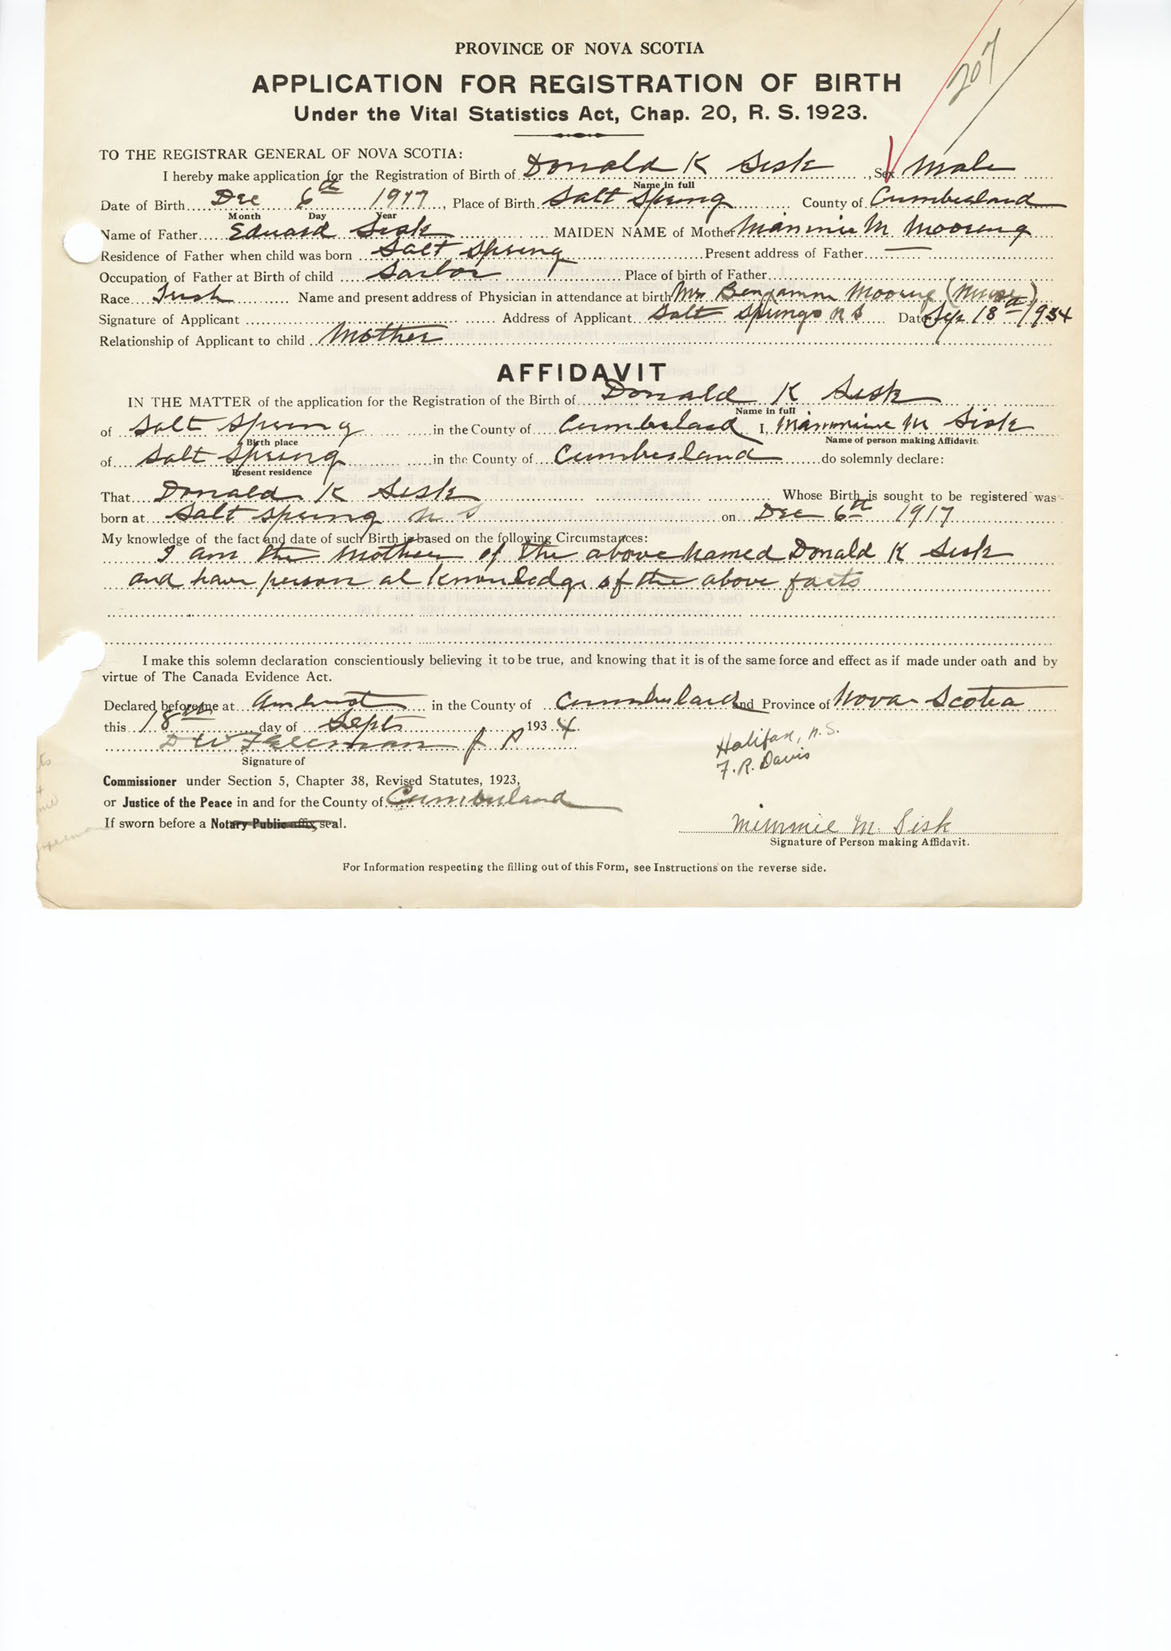 PROVINCE OF NOVA SCOTIA
207
APPLICATION FOR REGISTRATION OF BIRTH
Under the Vital Statistics Act, Chap. 20, R. S. 1923.
TO THE REGISTRAR GENERAL OF NOVA SCOTIA:
I hereby make application for the Registration of Birth of Donald K Sisk, Sex Male
Name in full
Date of Birth Dec 6th 1917, Place of Birth Salt Spring County of Cumberland
Month Day Year
Name of Father Edward Sisk MAIDEN NAME of Mother Minnie M Mooring
Residence of Father when child was born Salt Spring Present address of Father —
Occupation of Father at Birth of child Sailor Place of birth of Father
Race Irish Name and present address of Physician in attendance at birth Mrs Benjamin Mooring (Nurse)
Signature of Applicant Address of Applicant Salt Springs N S Date Sep 18th 1934
Relationship of Applicant to child Mother
AFFIDAVIT
IN THE MATTER of the application for the Registration of the Birth of Donald K Sisk
Name in full
of Salt Spring in the County of Cumberland I, Minnie M Sisk
Birth place Name of person making Affidavit.
of Salt Spring in the County of Cumberland do solemnly declare:
Present residence
That Donald K Sisk Whose Birth is sought to be registered was
born at Salt Spring N S on Dec 6th 1917
My knowledge of the fact and date of such Birth is based on the following Circumstances:
I am the Mother of the above Named Donald K Sisk
and have person al knowledge of the above facts
I make this solemn declaration conscientiously believing it to be true, and knowing that it is of the same force and effect as if made under oath and by
virtue of The Canada Evidence Act.
Declared before me at Amherst in the County of Cumberland and Province of Nova Scotia
this 18th day of Septs 1934.
D W Freeman J P
Halifax, N.S.
F.R. Davis
Signature of
Commissioner under Section 5, Chapter 38, Revised Statutes, 1923,
or Justice of the Peace in and for the County of Cumberland
If sworn before a Notary Public affix seal.
Minnie M. Sisk
Signature of Person making Affidavit.
For Information respecting the filling out of this Form, see Instructions on the reverse side.